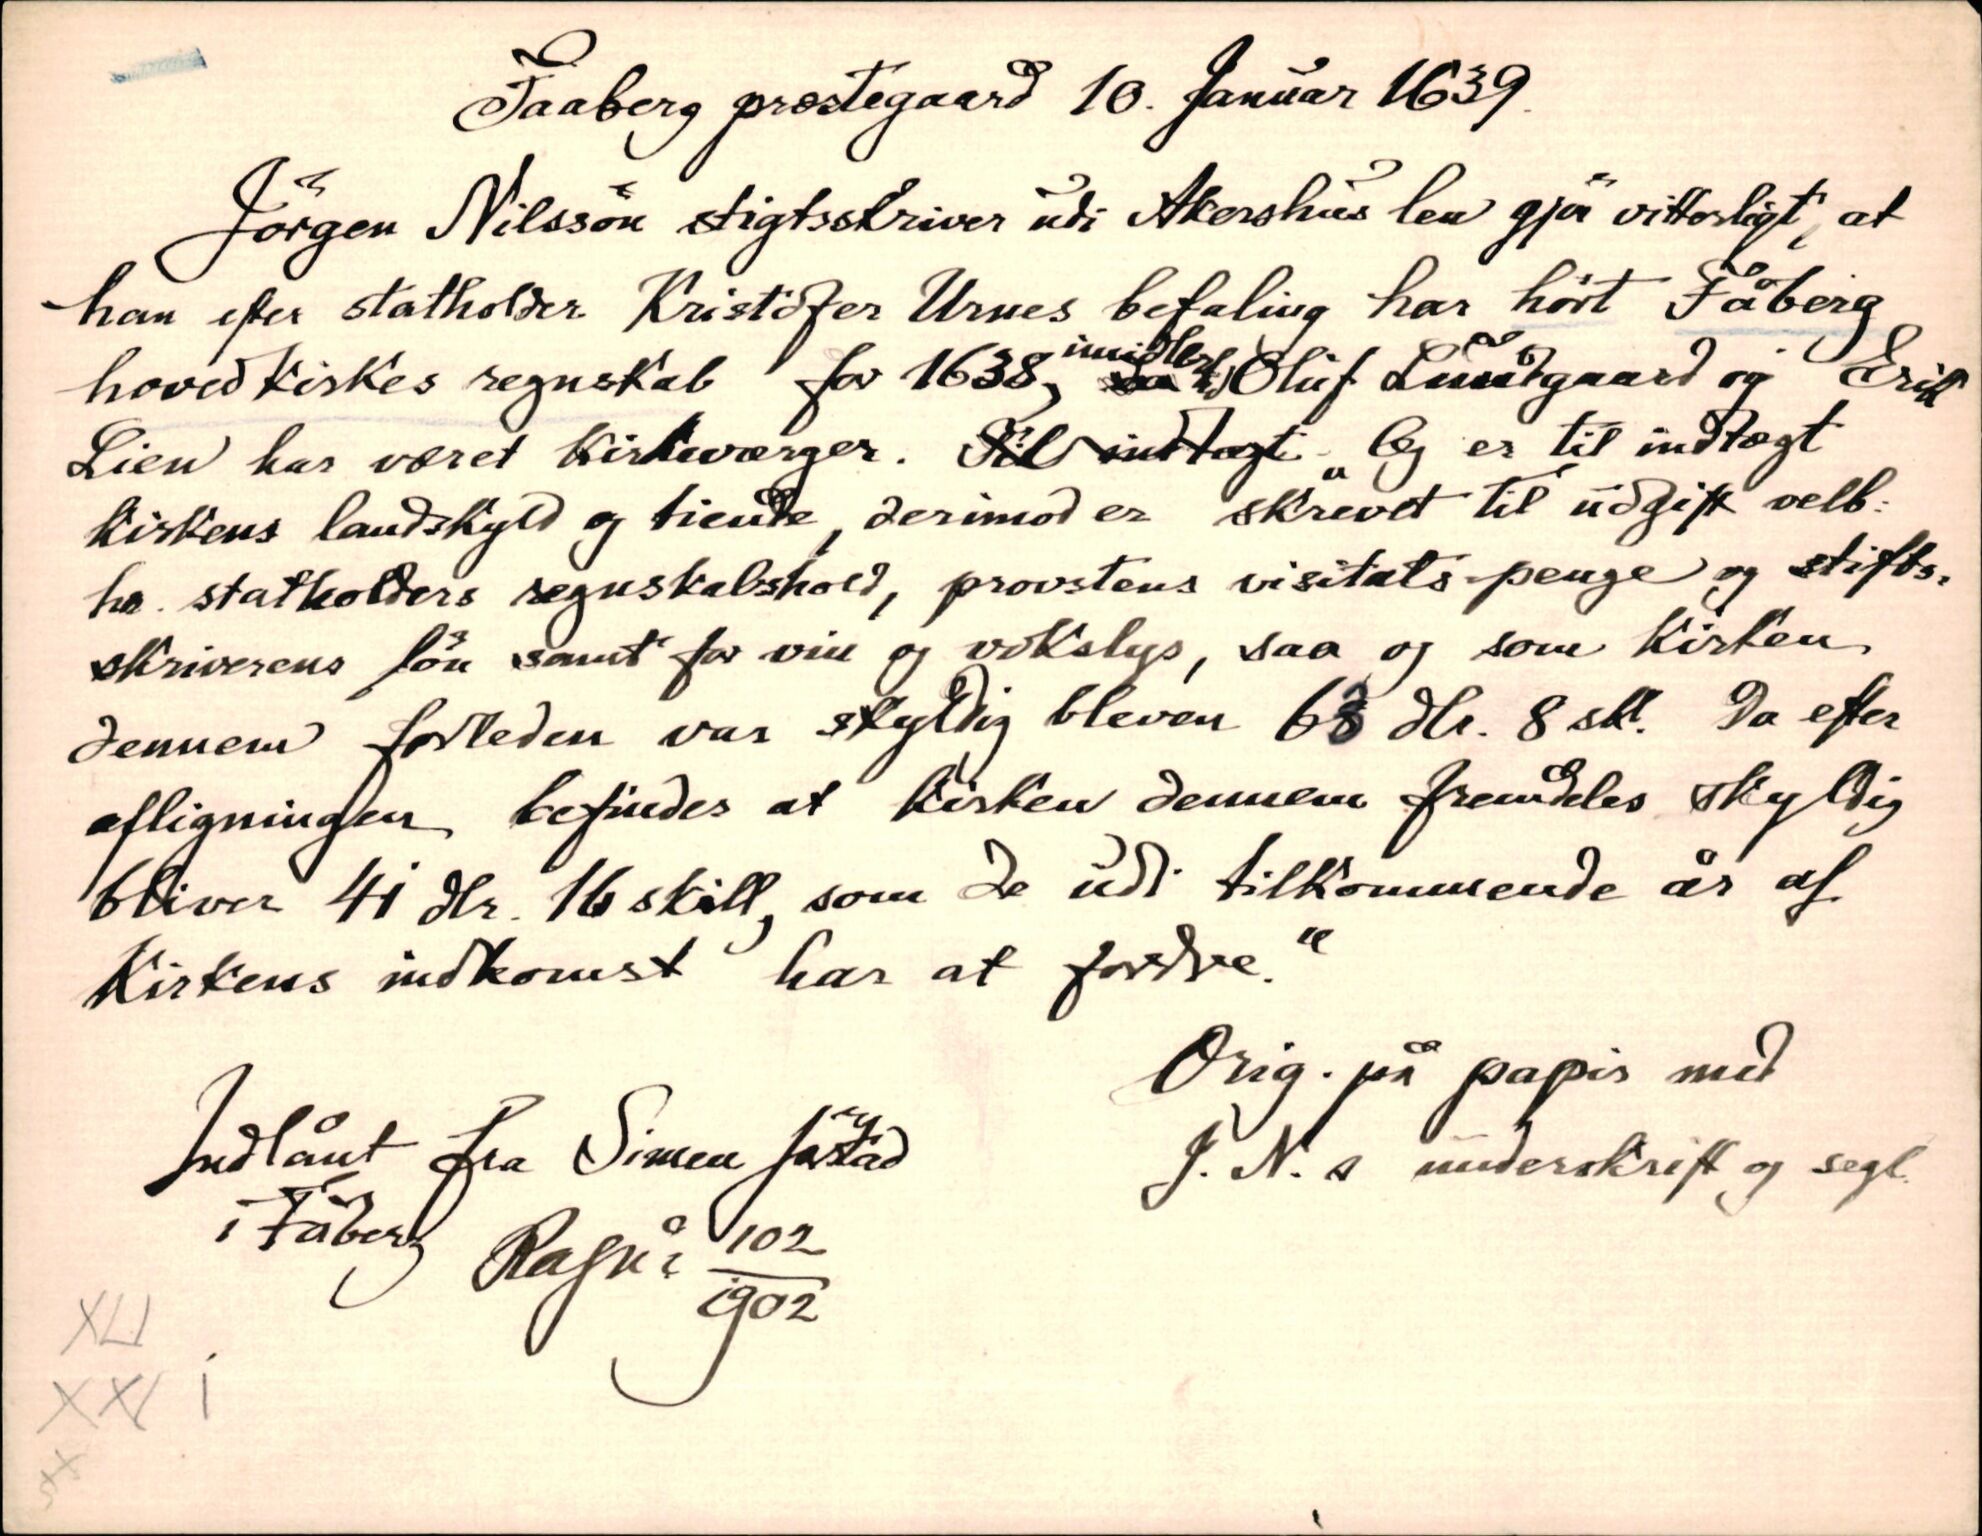 Faaberg prestegaard 10. Januar 1639.
Jörgen Nilssön stigtsskriver udi Akershus len gjör vitterligt, at
han efter statholder Kristofer Urnes befaling har hört Fåberg
hovedkirkes regnskab for 1638, imidlert Oluf Lundgaard og Erik
Lien har været kirkeværger. Til indtægt „Og er til indtægt
kirkens landskyld og tiende, derimod er skrevet til udgift velb:
hr. statholders regnskabshold, provstens visitats-penge og stifts-
skriverens lön samt for vin og vokslys, saa og som kirken
dennem forleden var skyldig bleven 68 dlr. 8 sk. Da efter
afligningen befindes at kirken dennem fremdeles skyldig
bliver 41 dlr. 16 skill, som de udi tilkommende år af
Kirkens indkomst har at fordre."
Orig. på papir med
J. N. s underskrift og segl.
Indlånt fra Simen Jörstad
i Fåberg
102
1902
XLI
XXV 1